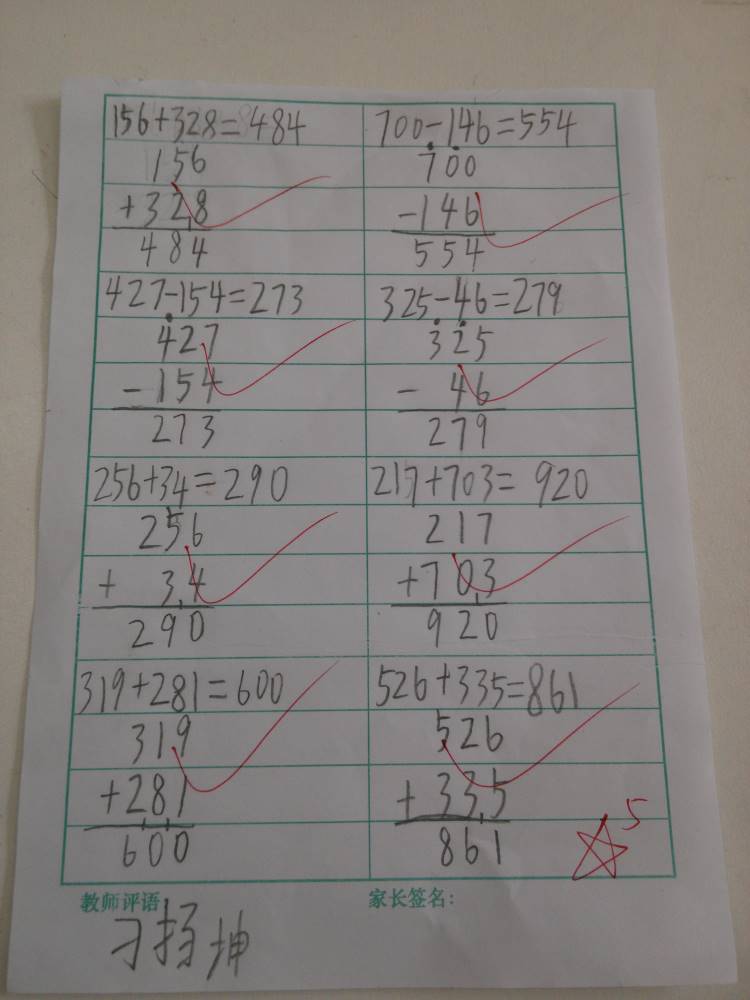 156+328=484
156
+328
484
700-146=554
700
-146
554
427-154=273
427
-154
273
325-46=279
325
- 46
279
256+34=290
256
+ 34
290
217+703=920
217
+703
920
319+281=600
319
+281
600
526+335=861
526
+335
861
5
教师评语
家长签名:
刁扬坤